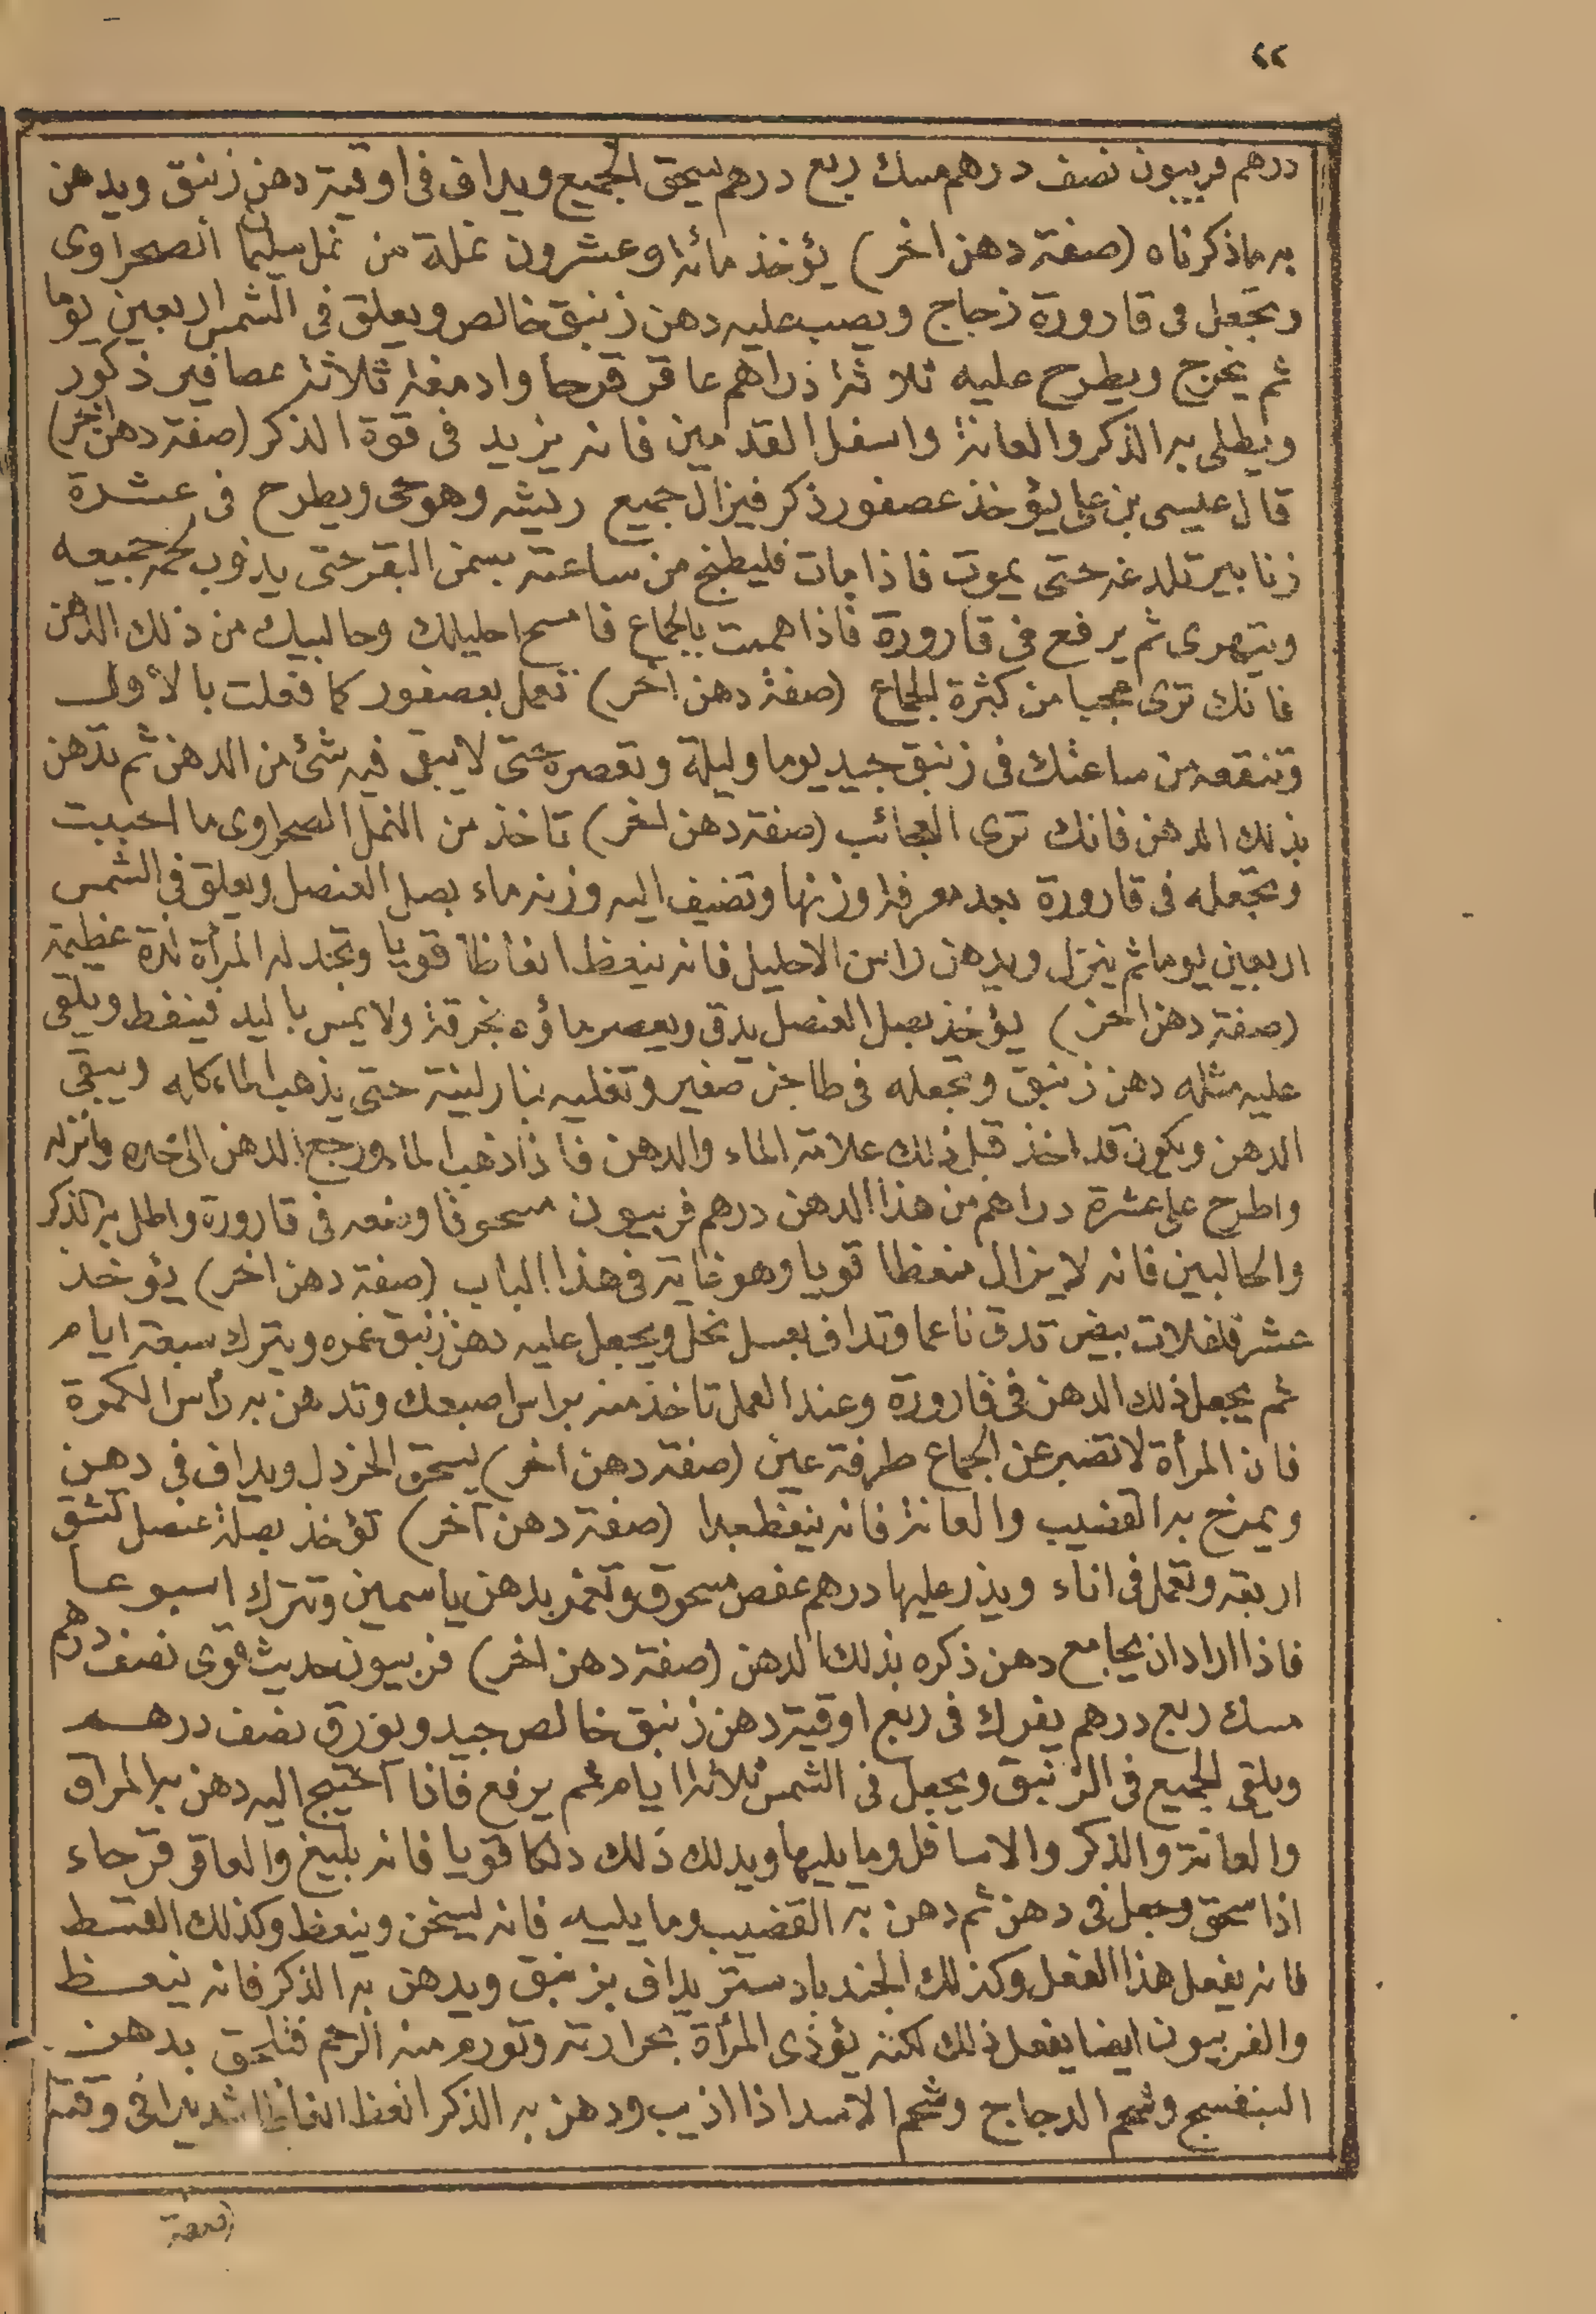 ٢٢
درهم فربيون نصف درهم مسك ربع درهم يسحق الجميع ويداف فى اوقية دهن زنبق ويدهن
به ماذكرناه (صفة دهن اخر) يؤخذ مائة وعشرون نملة من نمل سليمان الصحراوى
وتجعل فى قارورة زجاج ويصب عليه دهن زنبق خالص ويعلق فى الشمس اربعين يوما
ثم يخرج ويطرح عليه ثلاثة دراهم عاقر قرحا وادمغة ثلاثة عصافير ذكور
ويطلى به الذكر والعانة واسفل القدمين فانه يزيد فى قوة الذكر (صفة دهن اخر)
قال عيسى بن على يؤخذ عصفور ذكر فيزال جميع ريشه وهو حى ويطرح فى عشرة
زنابير تلدغه حتى يموت فاذا مات فليطبخ من ساعته بسمن البقر حتى يذوب لحمه جميعه
ويتهرى ثم يرفع فى قارورة فاذا هممت بالجماع فامسح احليلك وحالبيك من ذلك الدهن
فانك ترى عجبا من كثرة الجماع (صفة دهن اخر) تعمل بعصفور كما فعلت بالأول
وتنقعه من ساعتك فى زنبق جيد يوما وليلة وتعصره حتى لايبقى فيه شئ من الدهن ثم تدهن
بذلك الدهن فانك ترى العجائب (صفة دهن اخر) تاخذ من النمل الصحراوى ما احببت
وتجعله فى قارورة بعد معرفة وزنها وتضيف اليه وزنه ماء بصل العنصل ويعلق فى الشمس
اربعين يوما ثم ينزل ويدهن راس الاحليل فانه ينعظ انعاظا قويا وتجد له المرأة لذة عظيمة
(صفة دهن اخر) يؤخذ بصل العنصل يدق ويعصر ماؤه بخرقة ولا يمس باليد فينفط ويلقى
عليه مثله دهن زنبق وتجعله فى طاجن صغير وتغليه بنار لينة حتى يذهب الماء كله ويبقى
الدهن ويكون قد اخذ قبل ذلك علامة الماء والدهن فاذا ذهب الماء ورجع الدهن الى حده وانزله
واطرح على عشرة دراهم من هذا الدهن درهم فربيون مسحوقا وضعه فى قارورة واطل به الذكر
والحالبين فانه لايزال منعظا قويا وهو غاية فى هذا الباب (صفة دهن اخر) يؤخذ
عشر فلفلات بيض تدق ناعما وتداف بعسل نحل ويجعل عليه دهن زنبق غمره ويترك سبعة ايام
ثم يجعل ذلك الدهن فى قارورة وعند العمل تاخذ منه براس اصبعك وتدهن به رأس الكمرة
فان المرأة لا تصبر عن الجماع طرفة عين (صفة دهن اخر) يسحق الخردل ويداف فى دهن
ويمرخ به القضيب والعانة فانه ينعظ جدا (صفة دهن آخر) تؤخذ بصلة عنصل تشق
اربعة وتعمل فى اناء ويذر عليها درهم عفص مسحوق وتغمر بدهن ياسمين وتترك اسبوعا
فاذا اراد ان يجامع دهن ذكره بذلك الدهن (صفة دهن اخر) فربيون حديث قوى نصف درهم
مسك ربع درهم يفرك فى ربع اوقية دهن زنبق خالص جيد وبورق نصف درهم
ويلقى الجميع فى الزنبق ويجعل فى الشمس ثلاثة ايام ثم يرفع فاذا احتيج اليه دهن به المراق
والعانة والذكر والاسافل وما يليها ويدلك ذلك دلكا قويا فانه بليغ والعاقر قرحاء
اذا سحق وجعل فى دهن ثم دهن به القضيب وما يليه فانه يسخن وينعظ وكذلك القسط
فانه يفعل هذا الفعل وكذلك الجندبادستر يداف بزنبق ويدهن به الذكر فانه ينعظ
والفربيون ايضا يفعل ذلك لكنه يؤذى المرأة بحرارته وتورم منه الرحم فتلحق بدهن
البنفسج وشحم الدجاج وشحم الاسد اذا اذيب ودهن به الذكر انعظ انعاظا شديدا فى وقته